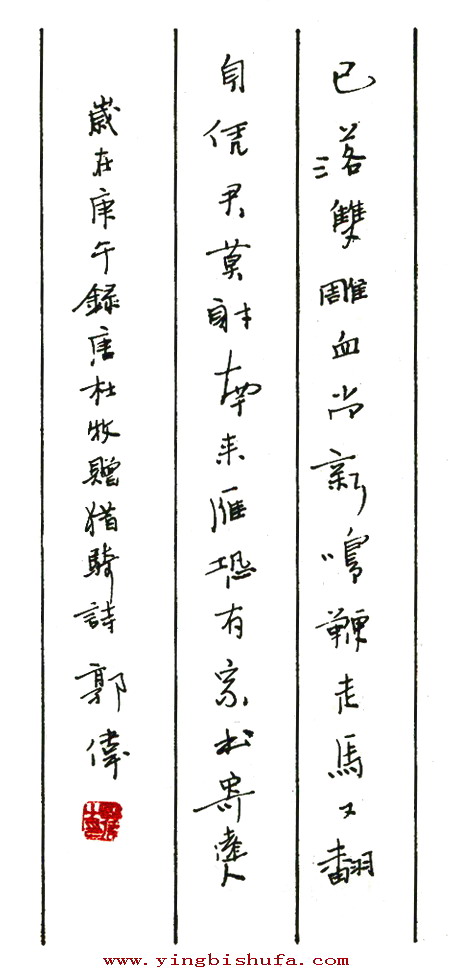 已落雙雕血尚新鳴鞭走馬又翻
身凭君莫射南来雁恐有家书寄遠人
歲在庚午録唐杜牧贈猎騎詩 郭偉
www.yingbishufa.com